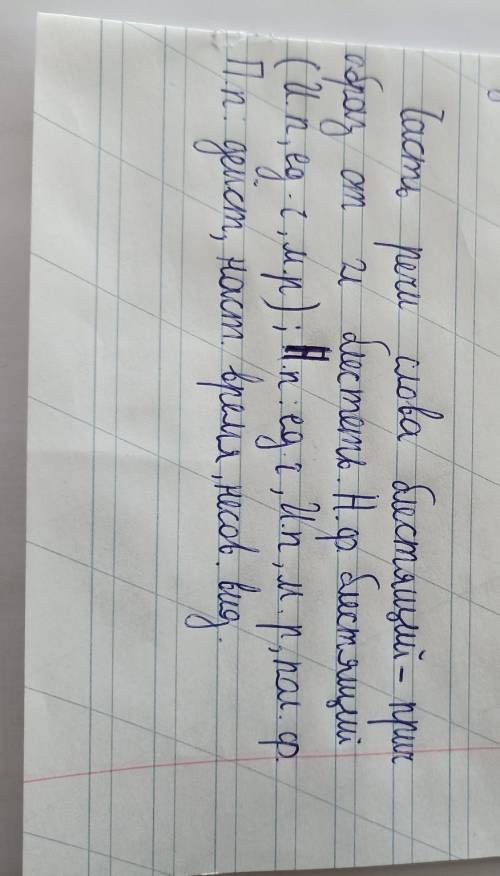 Часть речи слова блестящий - прич
образ от гл блестеть. Н.ф блестящий
(И.п, ед.ч, м.р); Н.п: ед.ч, И.п, м.р, пол.ф.
П.п: дейст, наст. время, несов. вид.